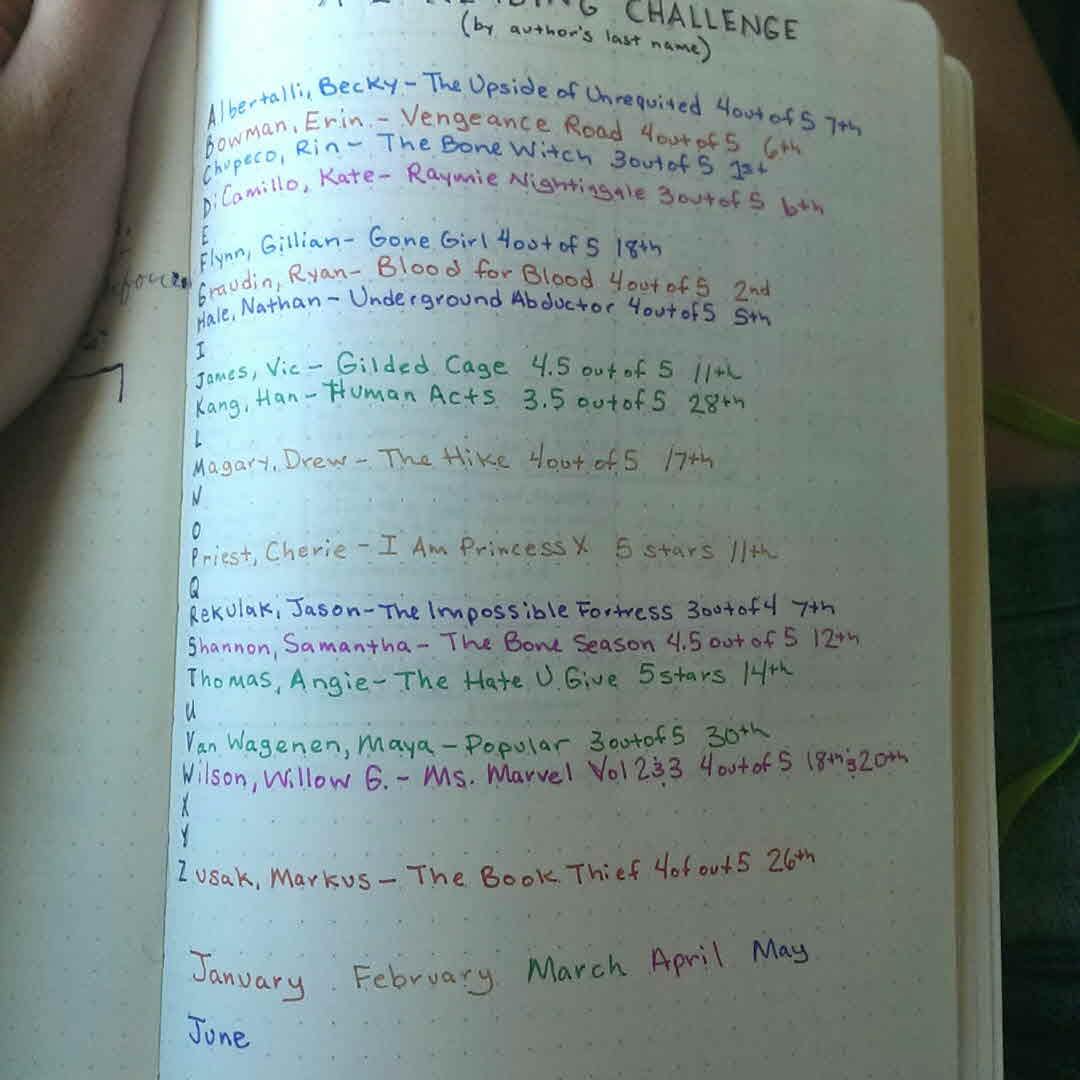 CHALLENGE
(by author's last name)
Albertalli, Becky - The Upside of Unrequited 4 out of 5 7th
Bowman, Erin. - Vengeance Road 4 out of 5 6th
Chupeco, Rin - The Bone Witch 3 out of 5 1st
DiCamillo, Kate - Raymie Nightingale 3 out of 5 6th
E
Flynn, Gillian - Gone Girl 4 out of 5 18th
Graudin, Ryan - Blood for Blood 4 out of 5 2nd
Hale, Nathan - Underground Abductor 4 out of 5 5th
I
James, Vic - Gilded Cage 4.5 out of 5 11th
Kang, Han - Human Acts 3.5 out of 5 28th
L
Magary, Drew - The Hike 4 out of 5 17th
N
O
Priest, Cherie - I Am Princess X 5 stars 11th
Q
Rekulak, Jason - The Impossible Fortress 3 out of 4 7th
Shannon, Samantha - The Bone Season 4.5 out of 5 12th
Thomas, Angie - The Hate U Give 5 stars 14th
U
Van Wagenen, Maya - Popular 3 out of 5 30th
Wilson, Willow G. - Ms. Marvel Vol 2 & 3 4 out of 5 18th & 20th
X
Y
Zusak, Markus - The Book Thief 4 of out 5 26th
January February March April May
June